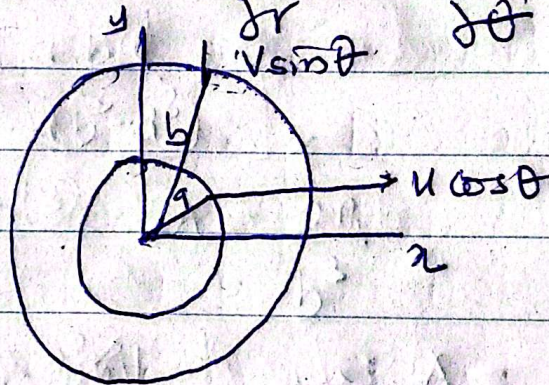 y ∂r ∂θ
V sinθ
b
a U cosθ
x